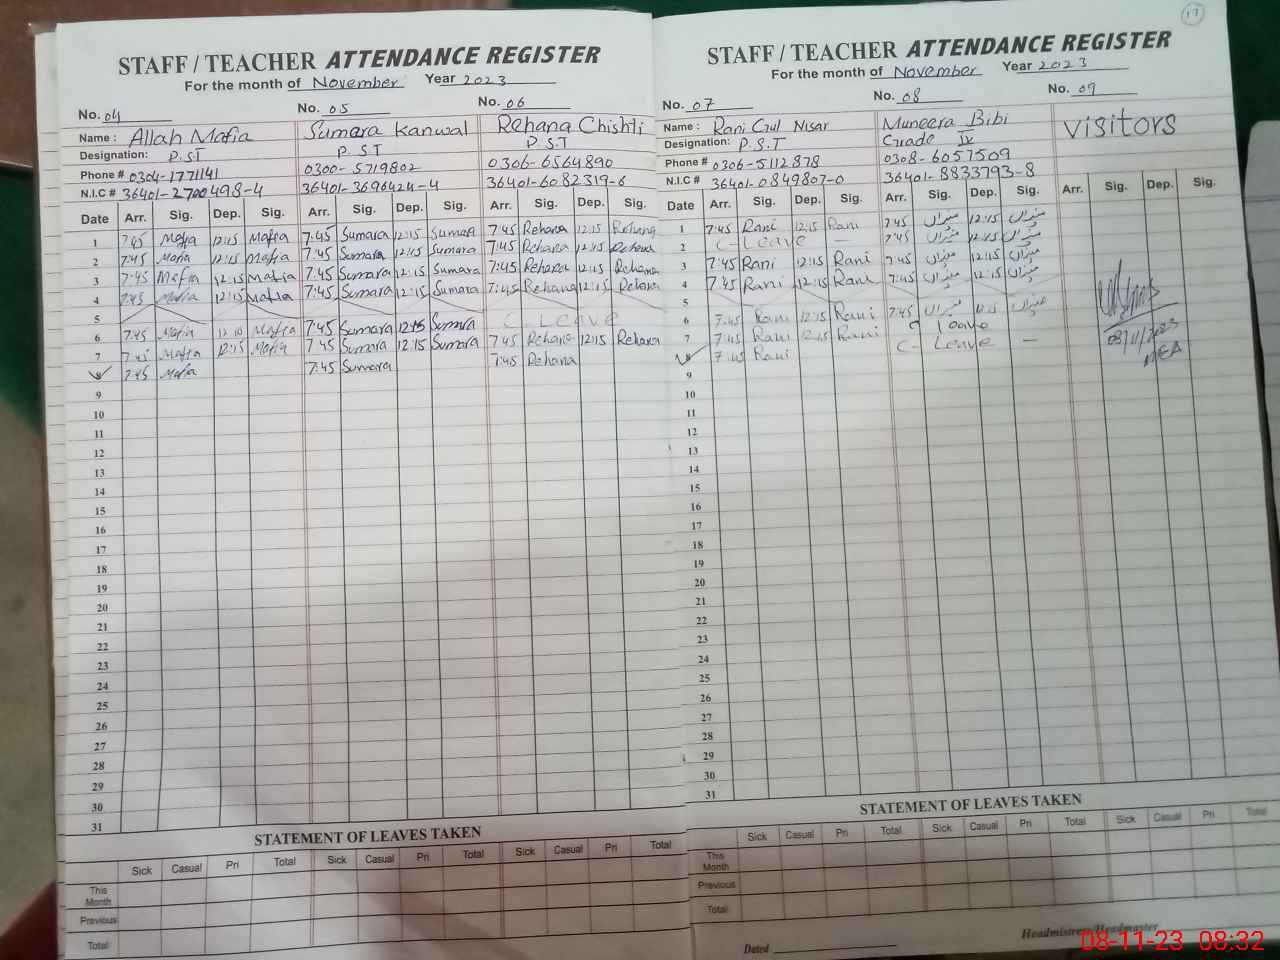 STAFF / TEACHER ATTENDANCE REGISTER
For the month of November Year 2023
No. 04 No. 05 No. 06
Name : Allah Mafia Sumara Kanwal Rehana Chishti
Designation: P.S.T P.S.T P.S.T
Phone # 0304-1771141 0300-5719802 0306-6564890
N.I.C # 36401-2700498-4 36401-3696424-4 36401-6082319-6
Date Arr. Sig. Dep. Sig. Arr. Sig. Dep. Sig. Arr. Sig. Dep. Sig.
1 7:45 Mafia 12:15 Mafia 7:45 Sumara 12:15 Sumara 7:45 Rehana 12:15 Rehana
2 7:45 Mafia 12:15 Mafia 7:45 Sumara 12:15 Sumara 7:45 Rehana 12:15 Rehana
3 7:45 Mafia 12:15 Mafia 7:45 Sumara 12:15 Sumara 7:45 Rehana 12:15 Rehana
4 7:45 Mafia 12:15 Mafia 7:45 Sumara 12:15 Sumara 7:45 Rehana 12:15 Rehana
5
6 7:45 Mafia 12:15 Mafia 7:45 Sumara 12:15 Sumara C Leave
7 7:45 Mafia 12:15 Mafia 7:45 Sumara 12:15 Sumara 7:45 Rehana 12:15 Rehana
7:45 Mafia 7:45 Sumara 7:45 Rehana
9
10
11
12
13
14
15
16
17
18
19
20
21
22
23
24
25
26
27
28
29
30
31
STATEMENT OF LEAVES TAKEN
Sick Casual Pri Total Sick Casual Pri Total Sick Casual Pri Total
This Month
Previous
Total:
17
STAFF / TEACHER ATTENDANCE REGISTER
For the month of November Year 2023
No. 07 No. 08 No. 09
Name : Rani Gul Nisar Muneera Bibi visitors
Designation: P.S.T Grade IV
Phone # 0306-5112878 0308-6057509
N.I.C # 36401-0849807-0 36401-8833793-8
Date Arr. Sig. Dep. Sig. Arr. Sig. Dep. Sig. Arr. Sig. Dep. Sig.
1 7:45 Rani 12:15 Rani 7:45 منیراں 12:15 منیراں
2 C-Leave — 7:45 منیراں 12:15 منیراں
3 7:45 Rani 12:15 Rani 7:45 منیراں 12:15 منیراں
4 7:45 Rani 12:15 Rani 7:45 منیراں 12:15 منیراں
5
6 7:45 Rani 12:15 Rani 7:45 منیراں 12:15 منیراں
7 7:45 Rani 12:15 Rani C Leave
7:45 Rani C- Leave —
08/11/2023
MEA
9
10
11
12
13
14
15
16
17
18
19
20
21
22
23
24
25
26
27
28
29
30
31
STATEMENT OF LEAVES TAKEN
Sick Casual Pri Total Sick Casual Pri Total Sick Casual Pri Total
This Month
Previous
Total:
Dated Headmistress/Headmaster
08-11-23 08:32